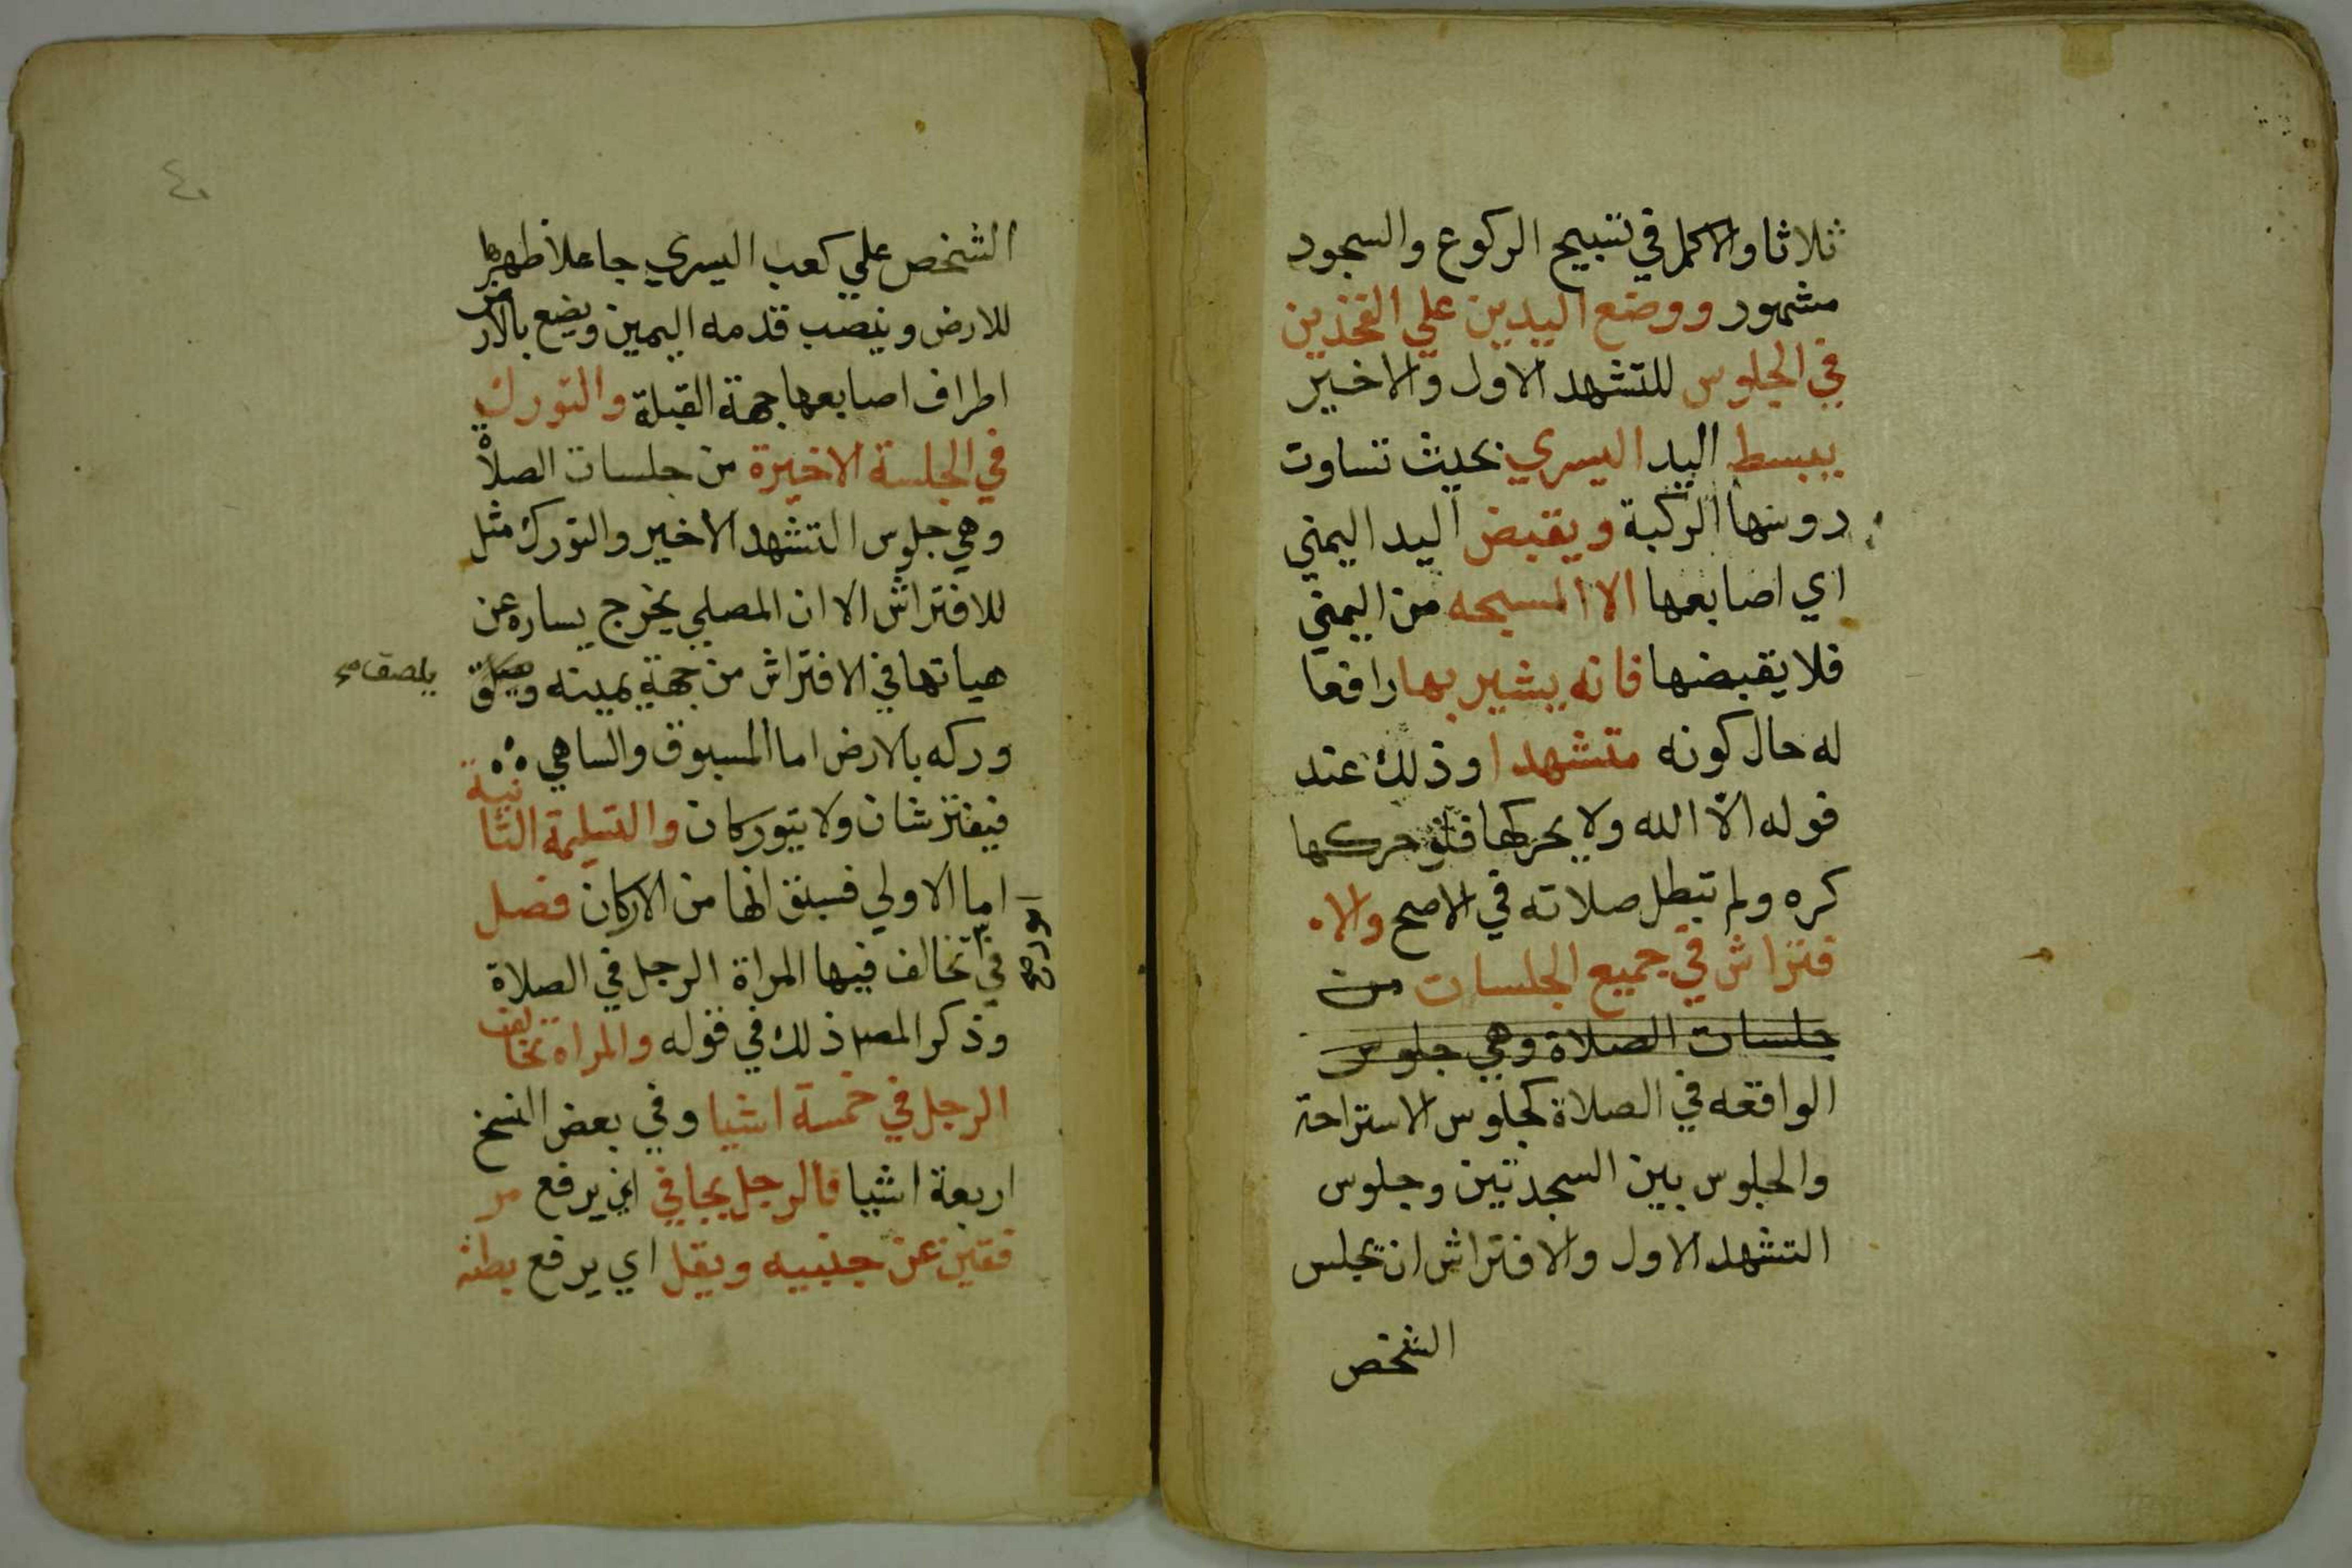 ثلاثا والاكمل في تسبيح الركوع والسجود
مشهور ووضع اليدين علي الفخذين
في الجلوس للتشهد الاول والاخير
يبسط اليد اليسري بحيث تساوت
روسها الركبة ويقبض اليد اليمني
اي اصابعها الا المسبحه من اليمني
فلا يقبضها فانه يشير بها رافعا
له حال كونه متشهدا وذلك عند
قوله الا الله ولا يحركها فلو حركها
كره ولم تبطل صلاته في الاصح والا
فتراش في جميع الجلسات من
جلسات الصلاة وهي جلوس
الواقعه في الصلاة كجلوس الاستراحة
والجلوس بين السجدتين وجلوس
التشهد الاول والافتراش ان يجلس
الشخص
٤٠
الشخص علي كعب اليسري جاعلا ظهرها
للارض وينصب قدمه اليمين ويضع بالارض
اطراف اصابعها جهة القبلة والتورك
في الجلسة الاخيرة من جلسات الصلاة
وهي جلوس التشهد الاخير والتورك مثل
للافتراش الا ان المصلي يخرج يساره عن
هياتها في الافتراش من جهة يمينه
يلصق
وركه بالارض اما المسبوق والساهي
فيفترشان ولا يتوركان والتسليمة الثانية
اما الاولي فسبق انها من الاركان فصل
في تخالف فيها المراة الرجل في الصلاة
وذكر المصـ ذلك في قوله والمراة تخالف
الرجل في خمسة اشيا وفي بعض النسخ
اربعة اشيا فالرجل يجافي اي يرفع مر
فقيه عن جنبيه ويقل اي يرفع بطنه